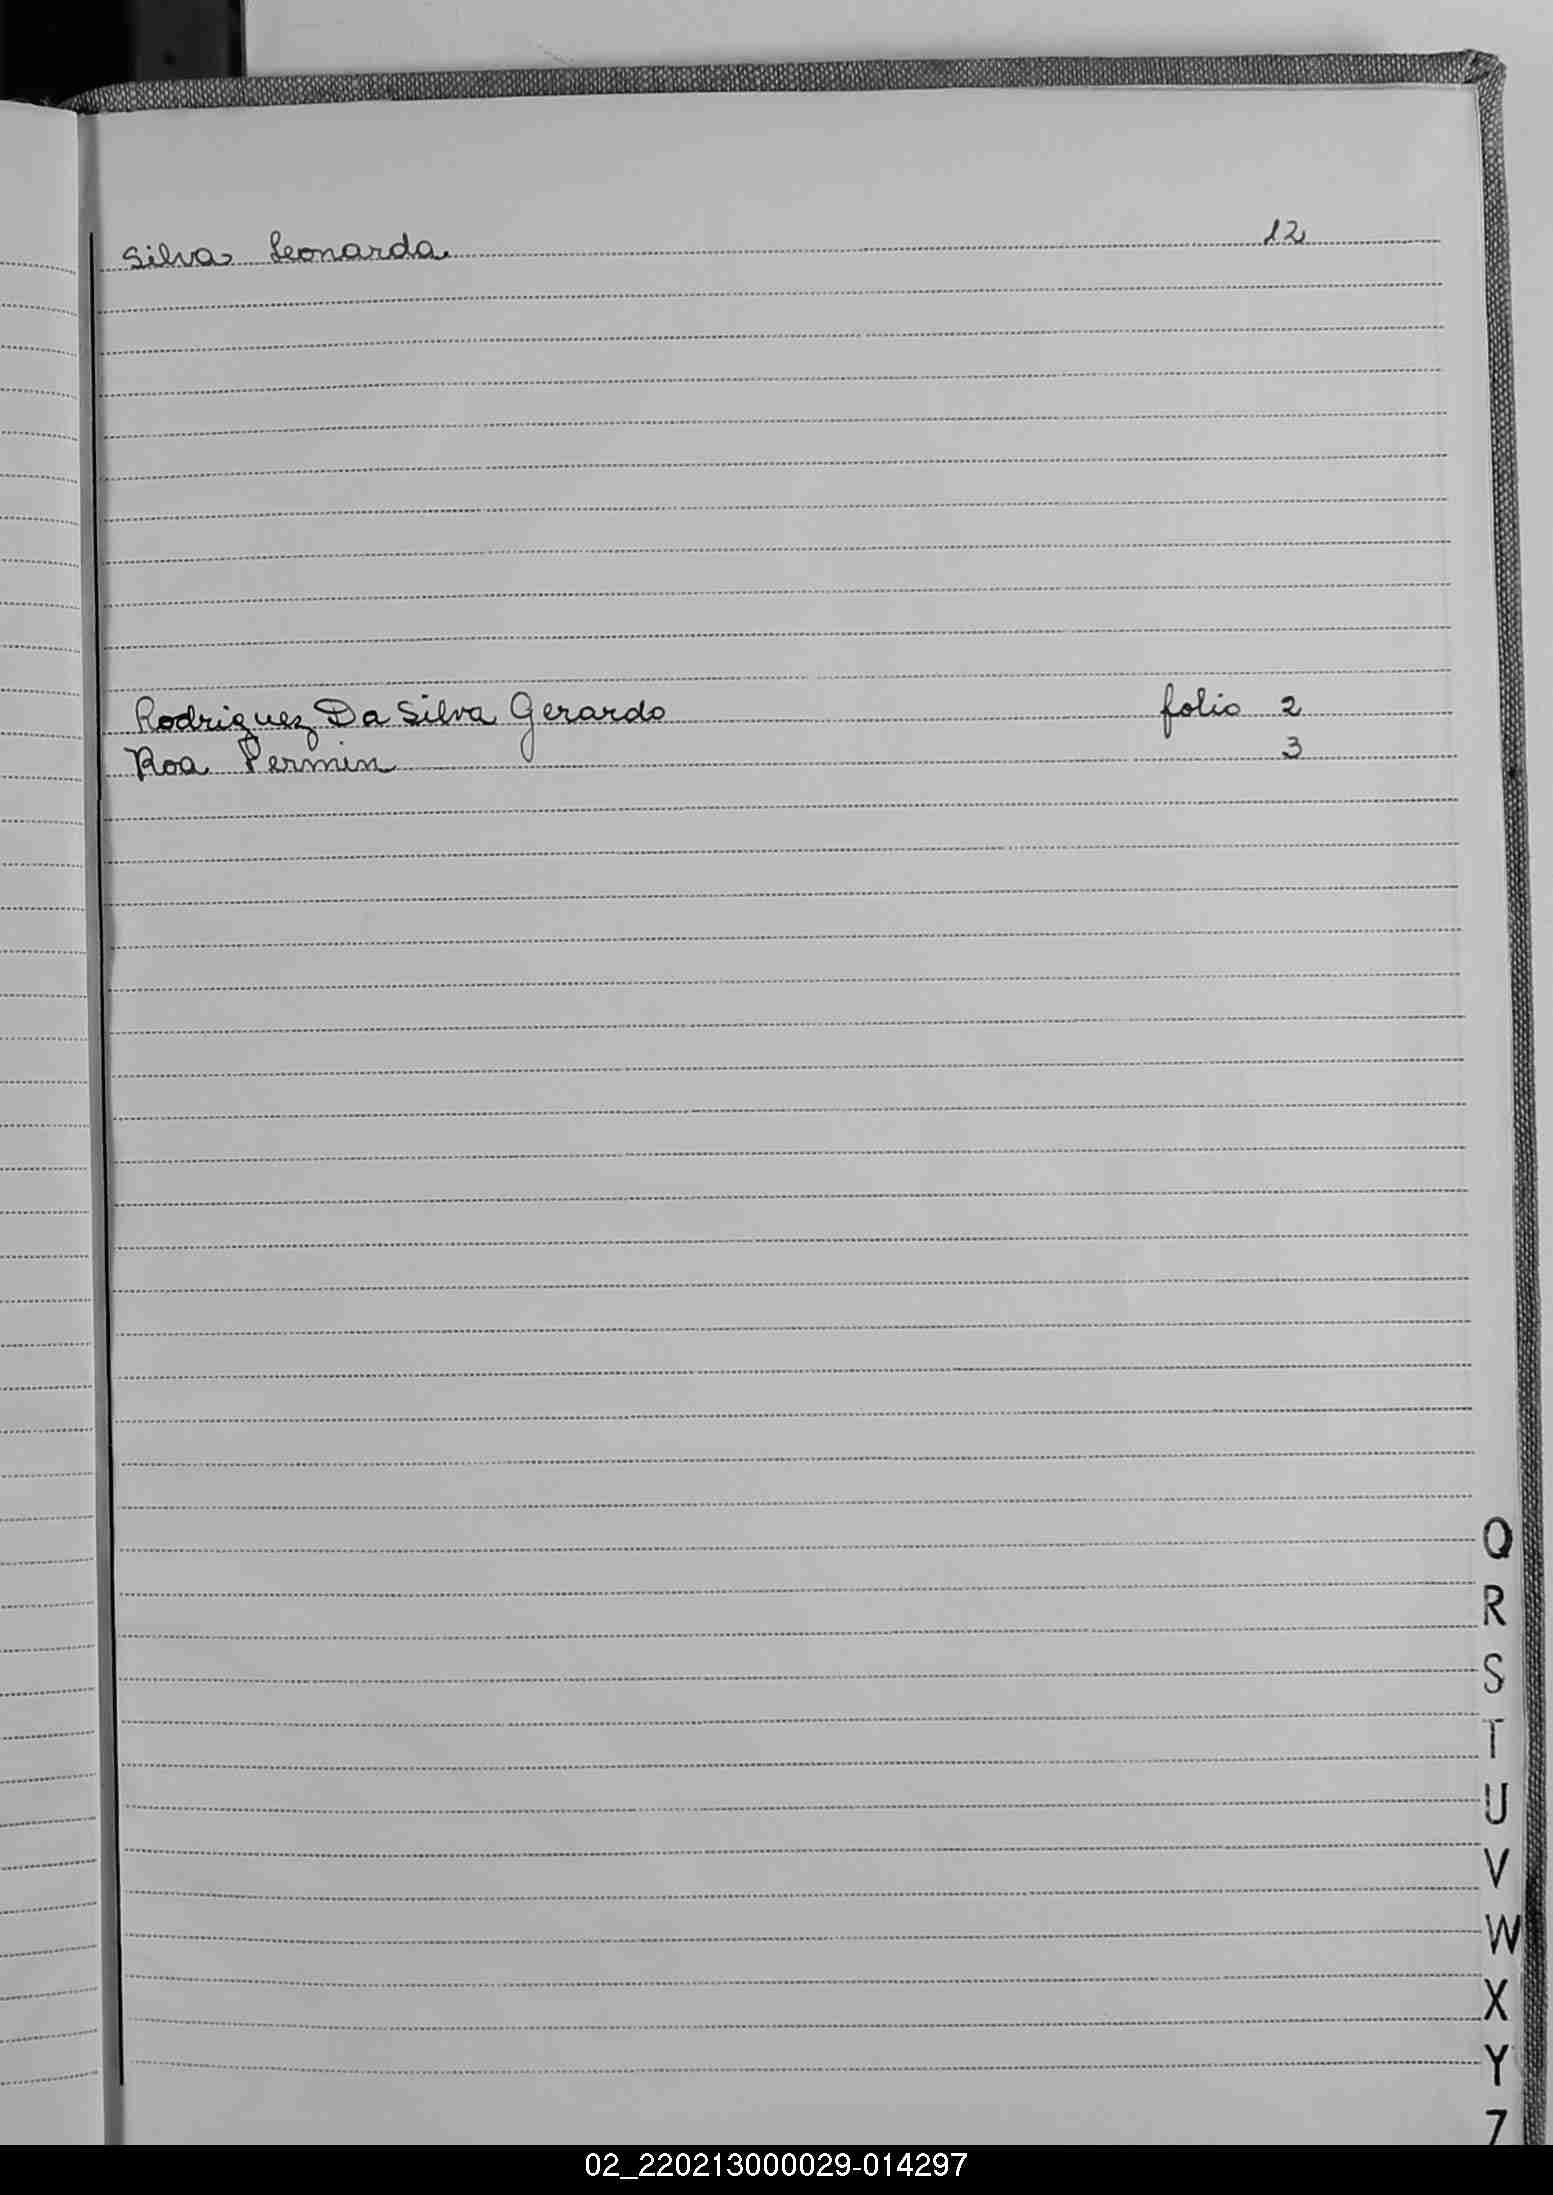 Silva Leonarda 12
Rodriguez Da Silva Gerardo folio 2
Roa Permin 3
Q
R
S
T
U
V
W
X
Y
Z
02_220213000029-014297